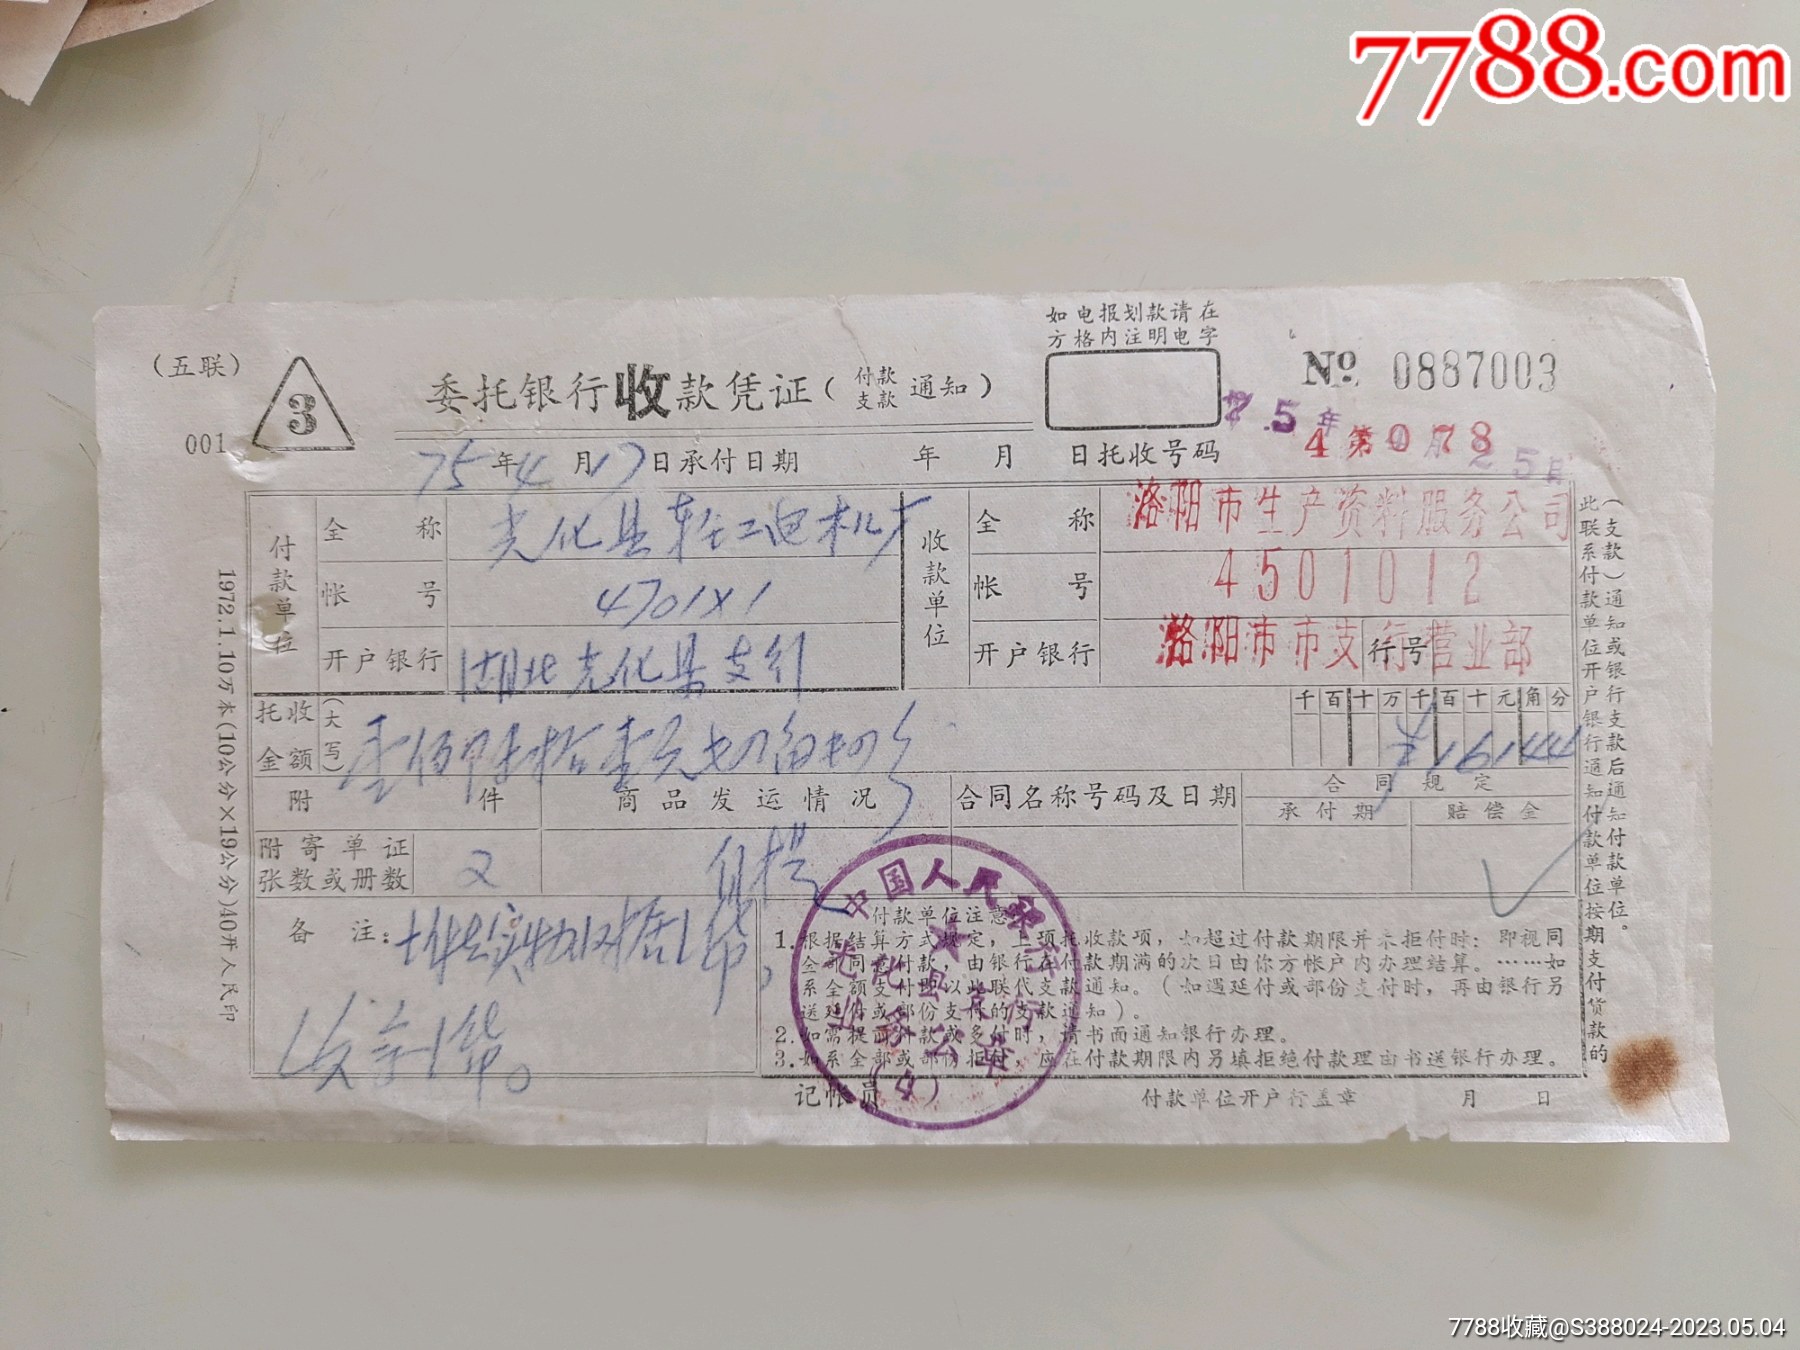 7788.com
如电报划款请在
方格内注明电字
(五联)
3
001
委托银行收款凭证(付款支款通知)
№ 0887003
75年 月25日
75年4月17日承付日期 年 月 日托收号码 4第078
付款单位
全称 光化县轻工电机厂
帐号 4701×1
开户银行 湖北光化县支行
收款单位
全称 洛阳市生产资料服务公司
帐号 4501012
开户银行 洛阳市市支行营业部
行号
托收金额(大写) 壹佰陆拾壹元
千百十万千百十元角分
¥16144
附件
商品发运情况
合同名称号码及日期
合同规定
承付期
赔偿金
附寄单证张数或册数 2
自提
备注:
收到货。
付款单位注意
1.根据结算方式规定,上项托收款项,如超过付款期限并未拒付时:即视同
全部同意付款,由银行在付款期满的次日由你方帐户内办理结算。……如
系全额支付即以此联代支款通知。(如遇延付或部份支付时,再由银行另
送延付或部份支付的支款通知)。
2.如需提前付款或多付时,请书面通知银行办理。
3.如系全部或部份拒付,应在付款期限内另填拒绝付款理由书送银行办理。
记帐员
付款单位开户行盖章 月 日
中国人民银行
光化县支行
业务公章
(4)
1972.1.10万本(10公分×19公分)40开人民印
此联系付款单位开户银行通知付款单位按期支付货款的
(支款)通知或银行支款后通知付款单位。
7788收藏@S388024-2023.05.04